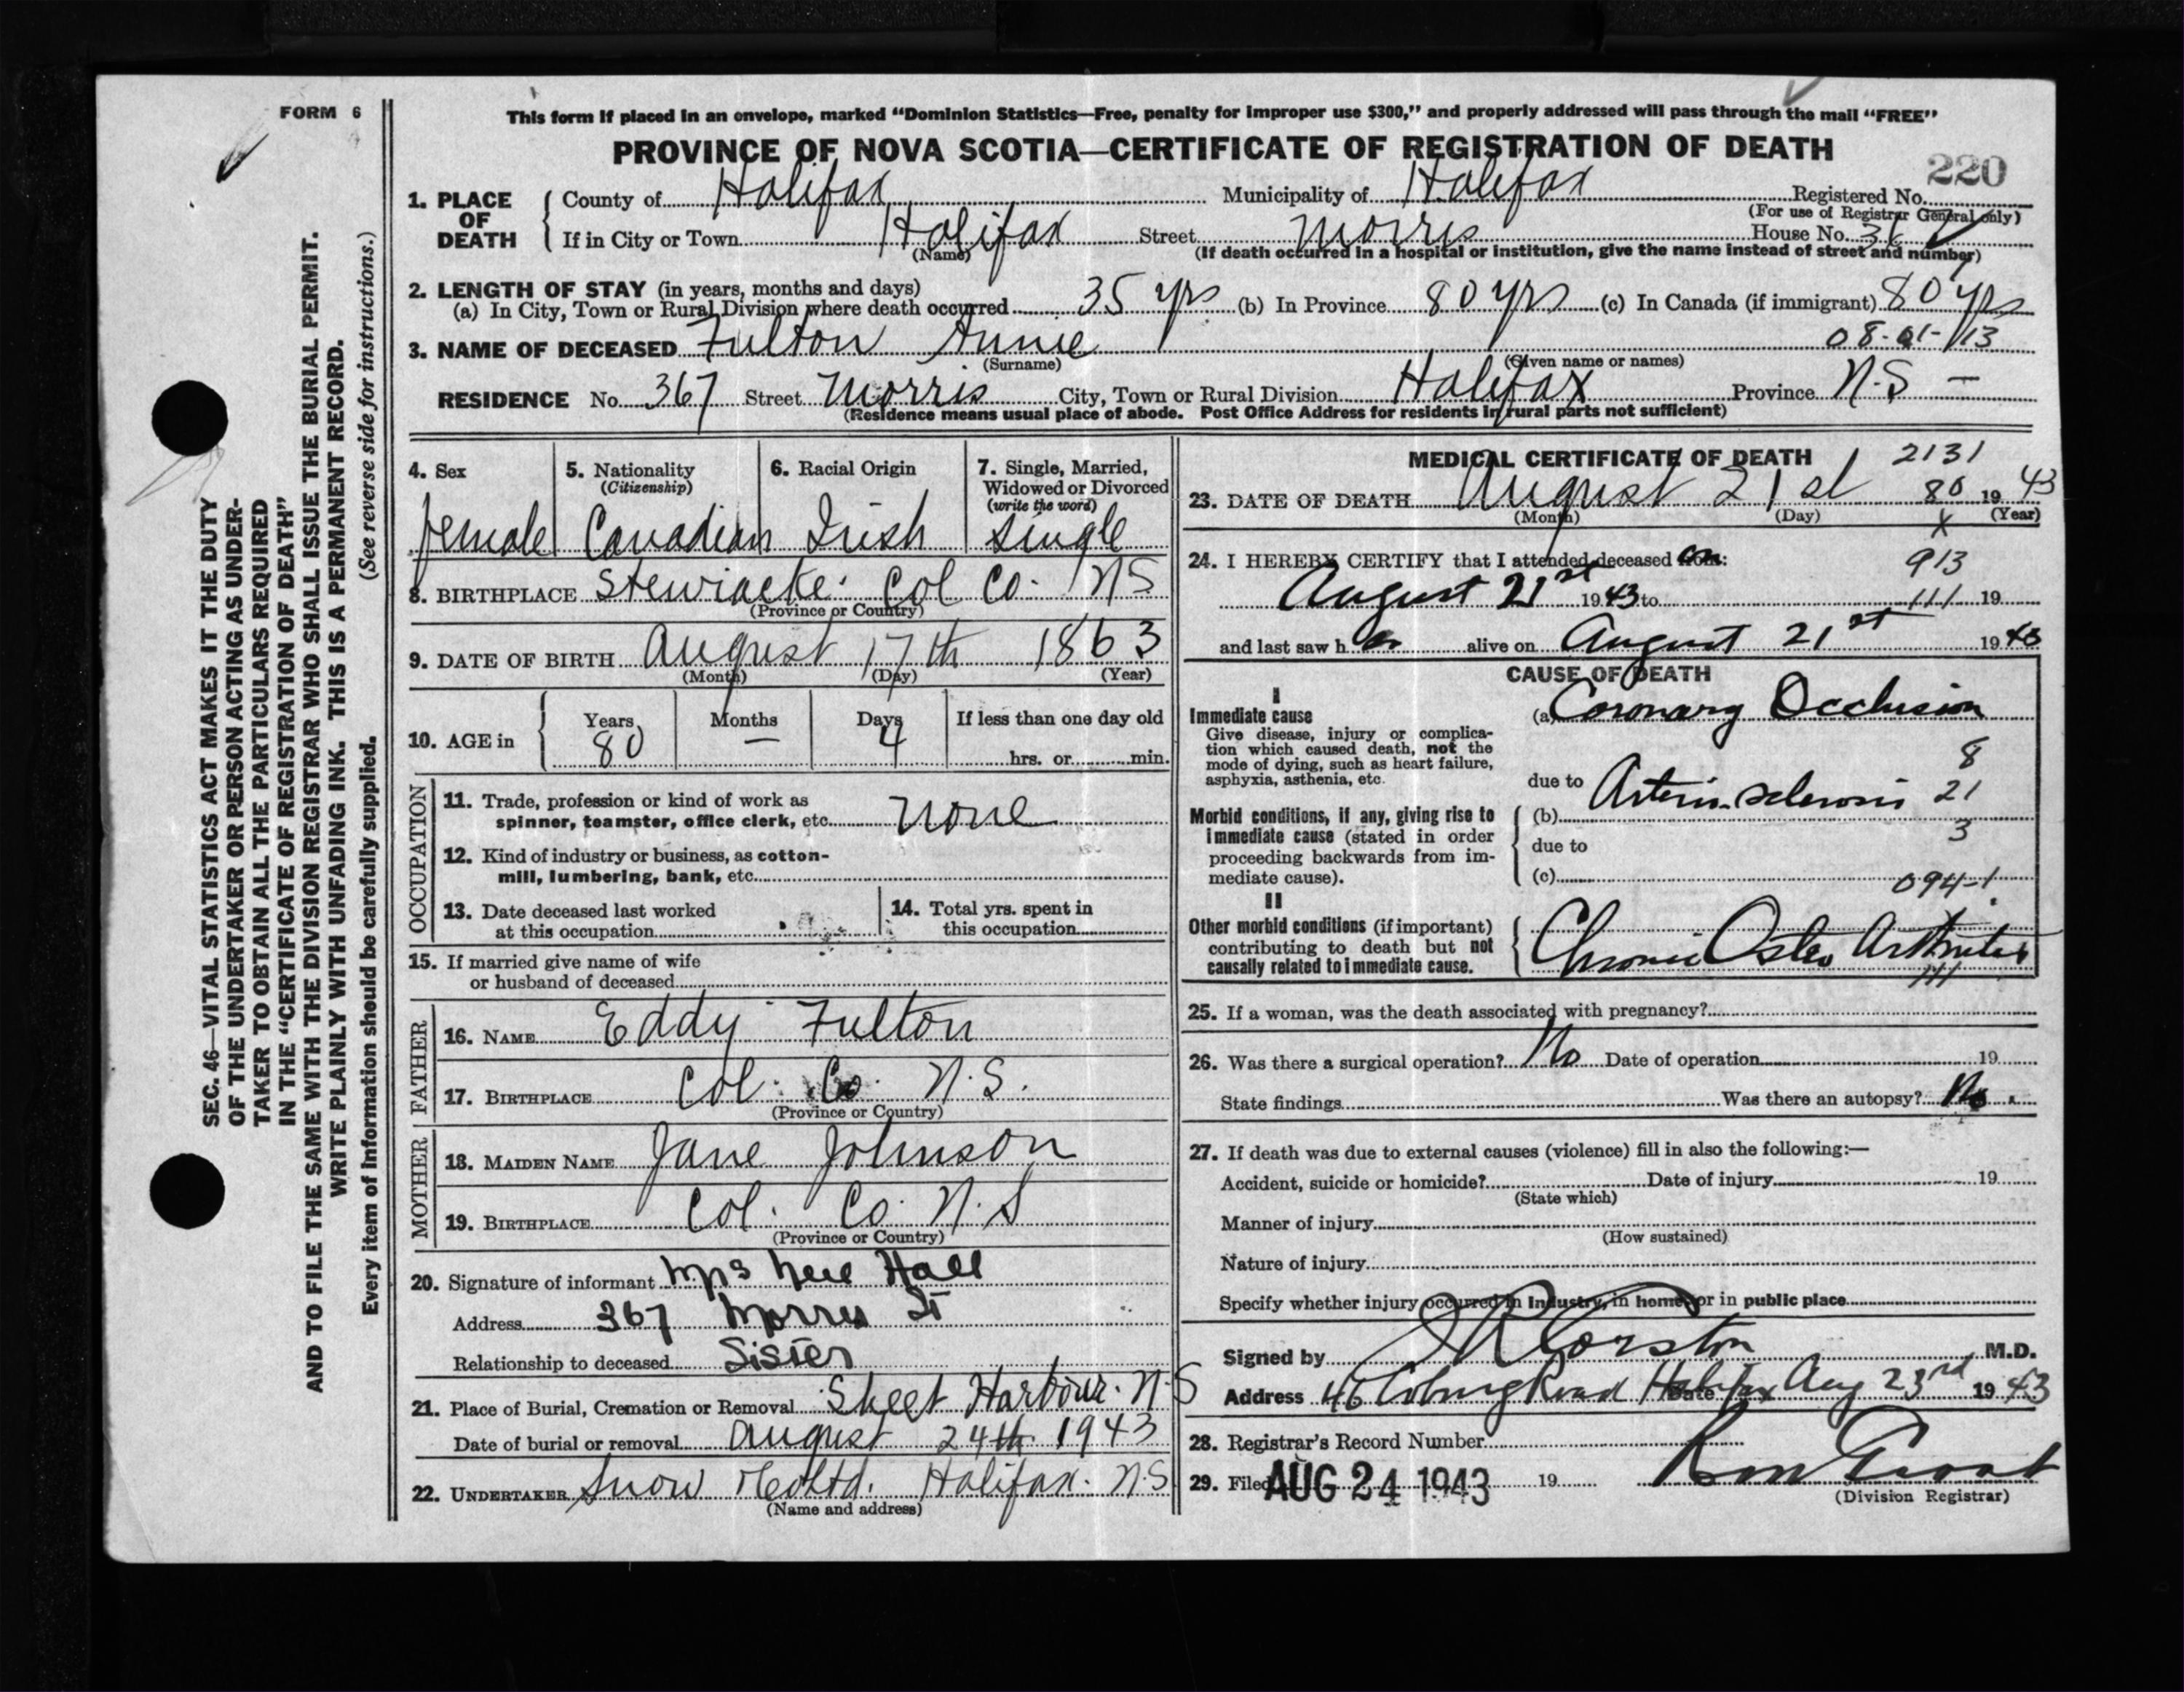 FORM 6
This form if placed in an envelope, marked “Dominion Statistics—Free, penalty for improper use $300,” and properly addressed will pass through the mail “FREE”
PROVINCE OF NOVA SCOTIA—CERTIFICATE OF REGISTRATION OF DEATH
220
1. PLACE OF DEATH
County of Halifax Municipality of Halifax Registered No.
(For use of Registrar General only)
If in City or Town Halifax Street Morris House No.
(Name) (If death occurred in a hospital or institution, give the name instead of street and number)
2. LENGTH OF STAY (in years, months and days)
(a) In City, Town or Rural Division where death occurred 35 yrs (b) In Province 80 yrs (c) In Canada (if immigrant) 80 yrs
08-01-113
3. NAME OF DECEASED Fulton Annie
(Surname) (Given name or names)
RESIDENCE No. 367 Street Morris City, Town or Rural Division Halifax Province N.S —
(Residence means usual place of abode. Post Office Address for residents in rural parts not sufficient)
4. Sex
female
5. Nationality
(Citizenship)
Canadian
6. Racial Origin
Irish
7. Single, Married,
Widowed or Divorced
(write the word)
single
8. BIRTHPLACE Stewiacke. Col Co. NS
(Province or Country)
9. DATE OF BIRTH August 17th 1863
(Month) (Day) (Year)
10. AGE in
Years 80
Months —
Days 4
If less than one day old
hrs. or min.
OCCUPATION
11. Trade, profession or kind of work as
spinner, teamster, office clerk, etc. none
12. Kind of industry or business, as cotton-
mill, lumbering, bank, etc.
13. Date deceased last worked
at this occupation
14. Total yrs. spent in
this occupation
15. If married give name of wife
or husband of deceased
FATHER
16. NAME Eddy Fulton
17. BIRTHPLACE Col. Co. N.S.
(Province or Country)
MOTHER
18. MAIDEN NAME Jane Johnson
19. BIRTHPLACE Col. Co. N.S
(Province or Country)
20. Signature of informant Mrs Hall
Address 367 Morris St
Relationship to deceased Sister
21. Place of Burial, Cremation or Removal Sheet Harbour. N.S
Date of burial or removal August 24th 1943
22. UNDERTAKER Snow & Co Ltd. Halifax. N.S
(Name and address)
MEDICAL CERTIFICATE OF DEATH
2131
23. DATE OF DEATH August 21st 80 1943
(Month) (Day) (Year)
X
24. I HEREBY CERTIFY that I attended deceased on:
913
August 21st 1943 to 111 19
and last saw h er alive on August 21st 1943
CAUSE OF DEATH
I
Immediate cause
Give disease, injury or complica-
tion which caused death, not the
mode of dying, such as heart failure,
asphyxia, asthenia, etc.
(a) Coronary Occlusion
8
due to
Morbid conditions, if any, giving rise to
immediate cause (stated in order
proceeding backwards from im-
mediate cause).
(b) Arterio-sclerosis 21
3
due to
(c)
094-1
II
Other morbid conditions (if important)
contributing to death but not
causally related to immediate cause.
Chronic Osteo Arthritis
111
25. If a woman, was the death associated with pregnancy?
26. Was there a surgical operation? No Date of operation 19
State findings Was there an autopsy? No
27. If death was due to external causes (violence) fill in also the following:—
Accident, suicide or homicide? Date of injury 19
(State which)
Manner of injury
(How sustained)
Nature of injury
Specify whether injury occurred in industry, in home, or in public place
Signed by Corston M.D.
Address 46 Coburg Road Halifax Date Aug 23rd 1943
28. Registrar's Record Number
29. Filed AUG 24 1943 19
(Division Registrar)
SEC. 46—VITAL STATISTICS ACT MAKES IT THE DUTY
OF THE UNDERTAKER OR PERSON ACTING AS UNDER-
TAKER TO OBTAIN ALL THE PARTICULARS REQUIRED
IN THE “CERTIFICATE OF REGISTRATION OF DEATH”
AND TO FILE THE SAME WITH THE DIVISION REGISTRAR WHO SHALL ISSUE THE BURIAL PERMIT.
WRITE PLAINLY WITH UNFADING INK. THIS IS A PERMANENT RECORD.
Every item of information should be carefully supplied. (See reverse side for instructions.)